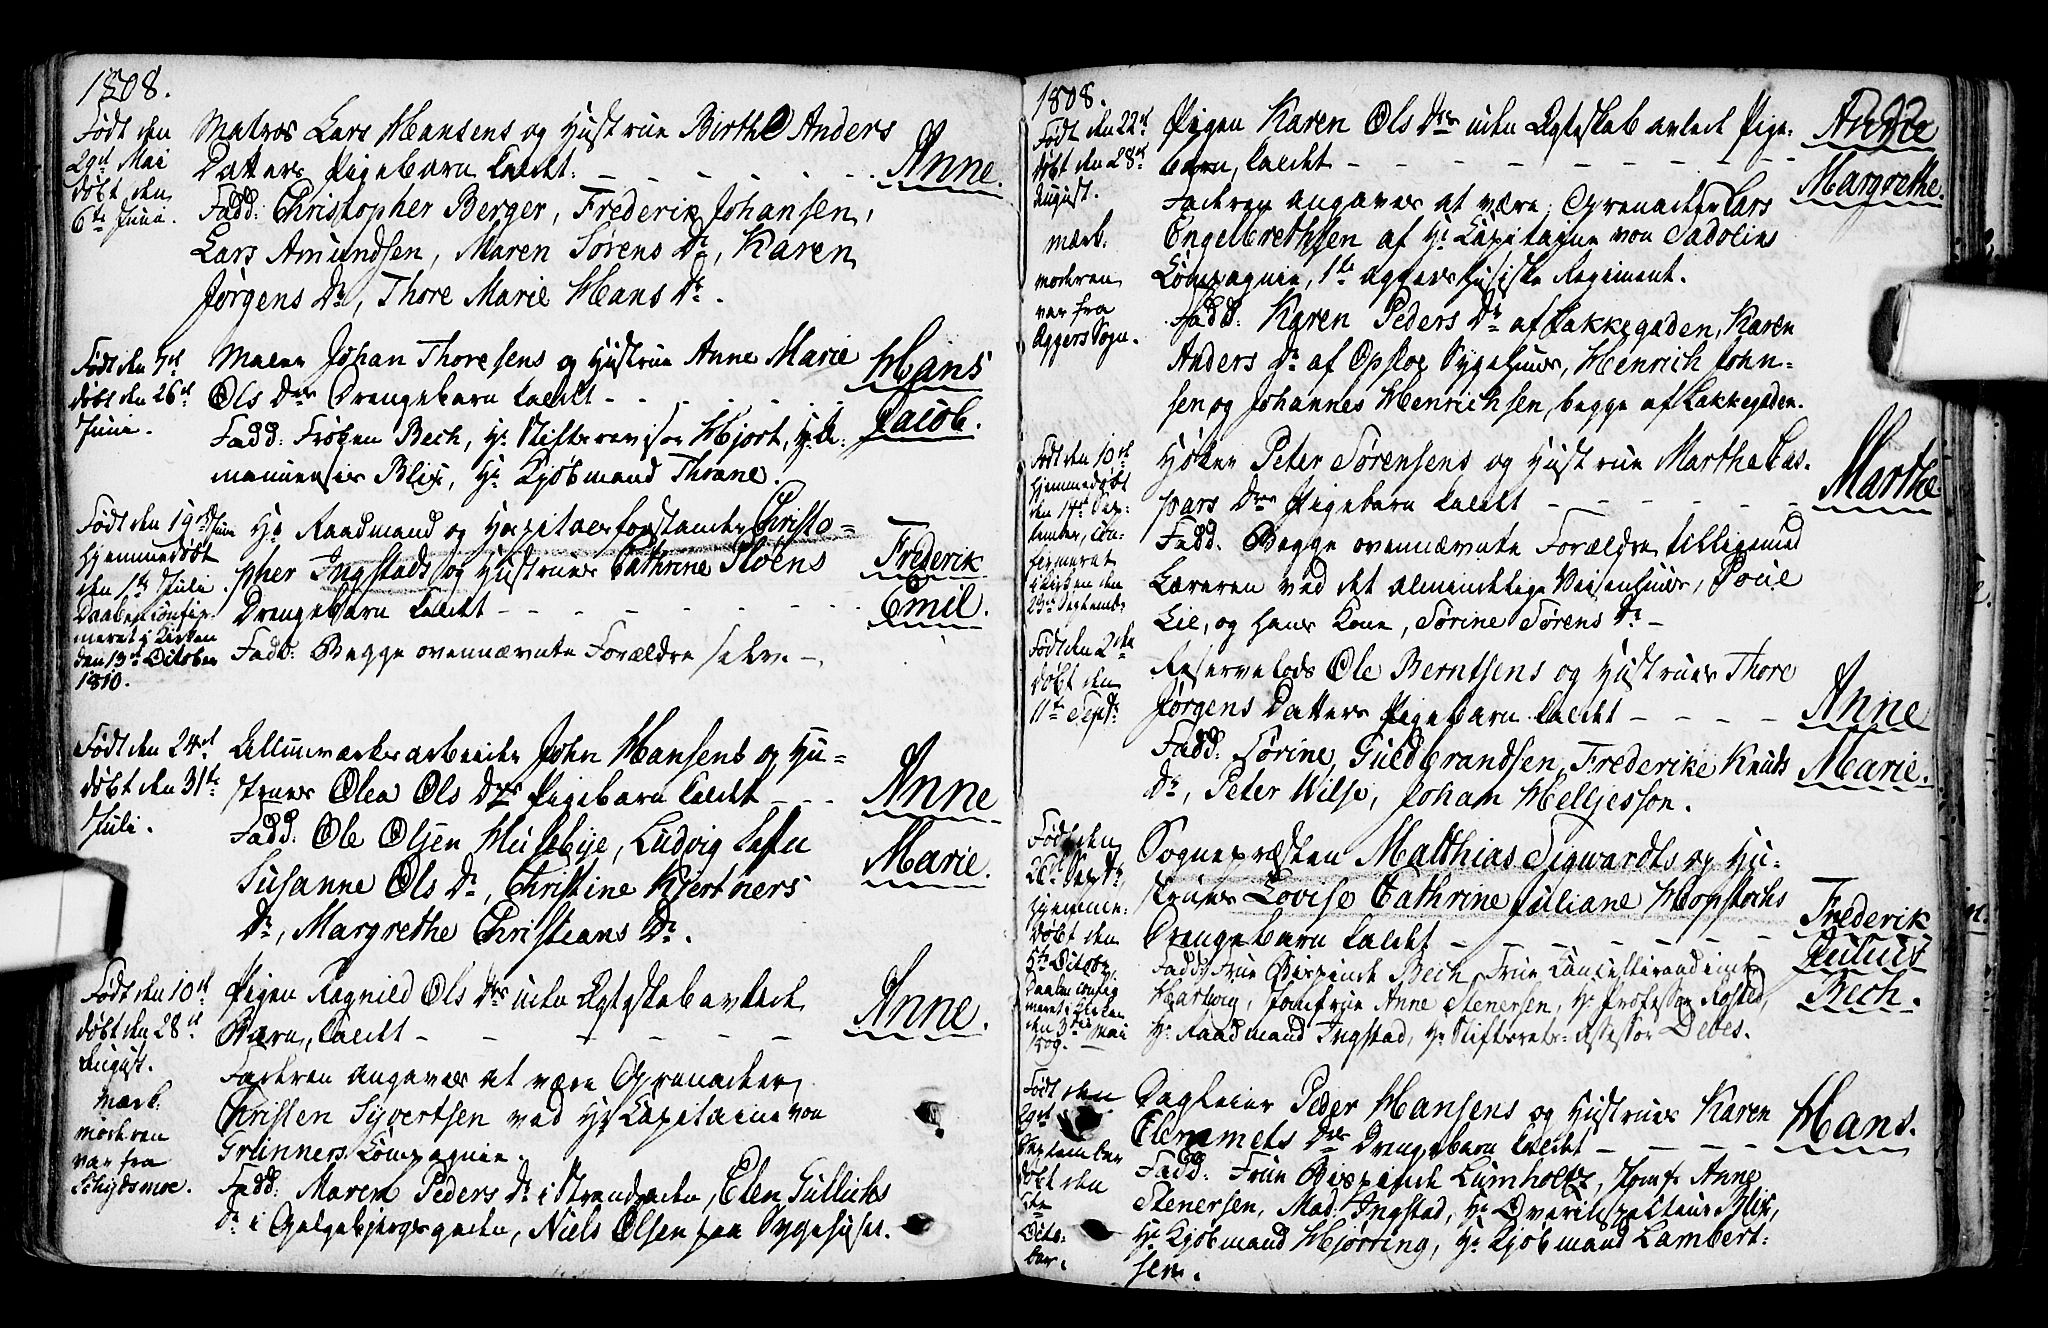 1808.
Født den
29de Mai
døbt den
6te Junii.
Matros Lars Hansens og Hustrue Birthe Anders
Datters Pigebarn kaldt. Anne.
Fadd: Christopher Berger, Frederik Johansen,
Lars Amundsen, Maren Sørens Dr, Karen
Jørgens Dr, Thore Marie Hans Dr.
Født den 7de
døbt den 26de
Junii.
Maler Johan Thoresens og Hustrue Anne Marie
Ols Drs Drengebarn kaldt Hans
Jacob.
Fadd: Frøken Bech, Hr Stiftsrevisor Hjort, Hr A-
manuensis Blix, Hr Kjøbmand Thrane.
Født den 19de Junii
hjemmedøbt
den 1te Julii.
Daaben confir-
meret i Kirken
den 13de October
1810.
Hr Raadmand og Hospitalsforstander Christo-
pher Ingstads og Hustrues Cathrine Steens
Drengebarn kaldt Frederik
Emil.
Fadd: Begge ovennævnte Forældre selv.
Født den 24de
døbt den 31te
Julii.
Allunværksarbeider John Hansens og Hu-
strues Olea Ols Drs Pigebarn kaldt Anne
Marie.
Fadd: Ole Olsen Husebye, Ludvig
Susanne Ols Dr, Christine Kjertners
Dr, Margrethe Christians Dr.
Født den 10de
døbt den 28de
August.
Mærk:
moderen
var fra
Schydsmoe.
Pigen Ragnild Ols Drs uden Ægteskab avlede
Barn, kaldt Anne.
Faderen angaves at være Grenadeer
Christen Syvertsen ved Hr Capitaine von
Grünners Compagnie.
Fadd: Maren Peders Dr i Strandgaden, Elen Gulliks
Dr i Galgebjergsgaden, Niels Olsen paa Sygehuset.
1808.
Født den 22de
døbt den 28de
August.
mærk:
moderen
var fra
Aggers Sogn.
Pigen Karen Ols Drs uden Ægteskab avlede Pige-
barn, kaldt Anne
Margrethe.
Faderen angaves at være Grenadeer Lars
Engelbrethsen af Hr Capitaine von Sadolins
Compagnie, 1te aggershusiske Regiment.
Fadd: Karen Peders Dr af Lakkegaden, Karen
Anders Dr af Opsloe Sygehuus, Henrich John-
sen og Johannes Henrichsen, begge af Lakkegaden.
Født den 10de
hjemmedøbt
den 14de Sep-
tember, con-
fermeret
i Kirken den
25de Septembr
Høker Peter Sørensens og Hustrue Marthe Cas-
pars Drs Pigebarn kaldt Marthe
Fadd. Begge ovennævnte Forældre tilligemed
Læreren ved det almindelige Vaisenhuus, Poul
Lie, og hans Kone, Sørine Sørens Dr
Født den 2den
døbt den
11te Septr
Reservelods Ole Berntsens og Hustrues Thore
Jørgens Datters Pigebarn kaldt Anne
Marie.
Fadd: Sørine Guldbrandsen, Frederike Knuds
Dr, Peter Wilse, Johan Helljesson.
Født den
26de Septr,
hjemme-
døbt den
5te Octobr.
Daaben confir
meret i Kirken
den 3die Mai
1809.
Sognepræsten Matthias Sigwardts og Hu-
strues Lovise Cathrine Juliane Hopstochs
Drengebarn kaldt Frederik
Julius
Bech.
Fadd: Frue Bispinde Bech, Frue Cancelliraadinde
Hartwig, Jomfrue Anne Stenersen, Hr Professor Rigsted,
Hr Raadmand Ingstad, Hr Stiftsrets-Assessor Debes.
Født den
29de
September
døbt den
Octo-
ber.
Dagleier Peder Hansens og Hustrues Karen
Clemmets Drs Drengebarn kaldt Hans.
Fadd: Frue Bispinde Lumholtz, Jomfr Anne
Stenersen, Mad: Ingstad, Hr Overinspecteur Blix,
Hr Kjøbmand Hjørring, Hr Kjøbmand Lambert-
sen.